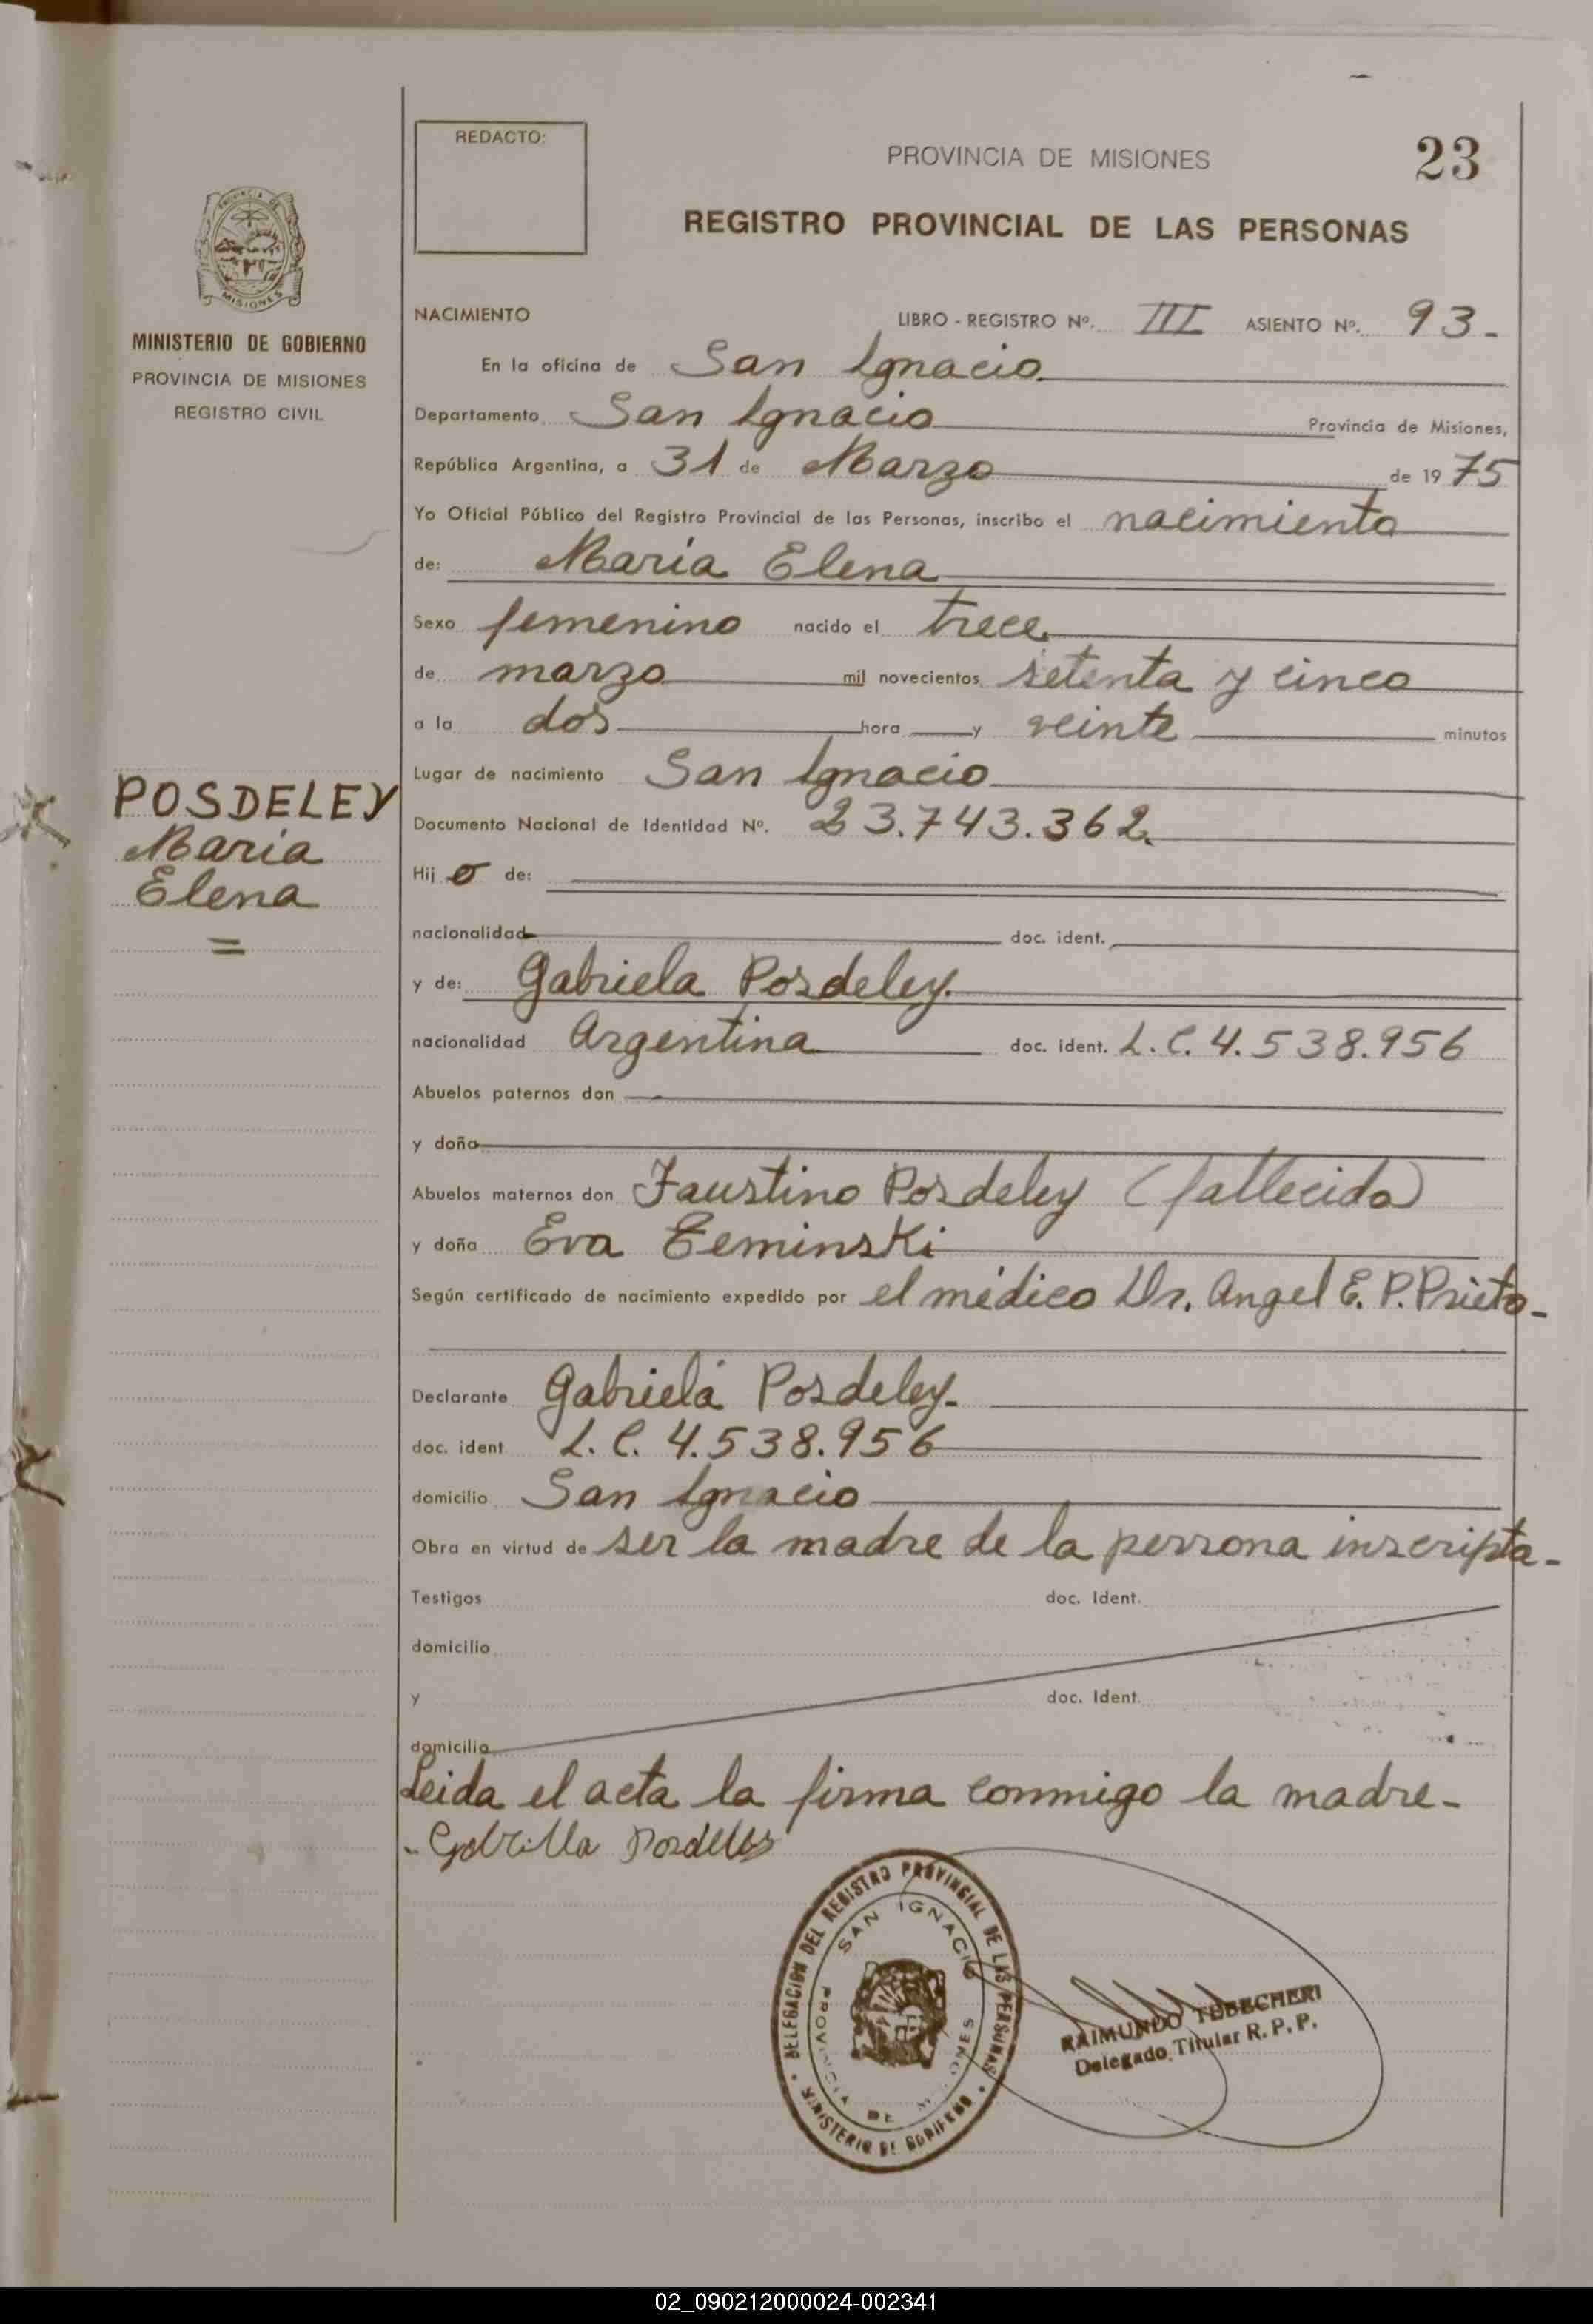 REDACTO:
PROVINCIA DE MISIONES
23
REGISTRO PROVINCIAL DE LAS PERSONAS
PROVINCIA DE
MISIONES
MINISTERIO DE GOBIERNO
PROVINCIA DE MISIONES
REGISTRO CIVIL
POSDELEY
Maria
Elena
=
NACIMIENTO LIBRO - REGISTRO Nº. III ASIENTO Nº. 93.-
En la oficina de San Ignacio
Departamento San Ignacio Provincia de Misiones,
República Argentina, a 31 de Marzo de 1975
Yo Oficial Público del Registro Provincial de las Personas, inscribo el nacimiento
de: María Elena
Sexo femenino nacido el trece
de marzo mil novecientos setenta y cinco
a la dos hora y veinte minutos
Lugar de nacimiento San Ignacio
Documento Nacional de Identidad Nº. 23.743.362.
Hij o de:
nacionalidad doc. ident.
y de: Gabriela Posdeley.
nacionalidad Argentina doc. ident. L.C. 4.538.956
Abuelos paternos don
y doña
Abuelos maternos don Faustino Posdeley (fallecido)
y doña Eva Zeminski
Según certificado de nacimiento expedido por el médico Dr. Angel E. P. Prieto-
Declarante Gabriela Posdeley.-
doc. ident L.C. 4.538.956
domicilio San Ignacio
Obra en virtud de ser la madre de la persona inscripta-
Testigos doc. Ident.
domicilio
y doc. Ident.
domicilio
Leida el acta la firma conmigo la madre-
DELEGACION DEL REGISTRO PROVINCIAL DE LAS PERSONAS
SAN IGNACIO
PROVINCIA DE MISIONES
MINISTERIO DE GOBIERNO
RAIMUNDO TEBECHERI
Delegado Titular R. P. P.
02_090212000024-002341